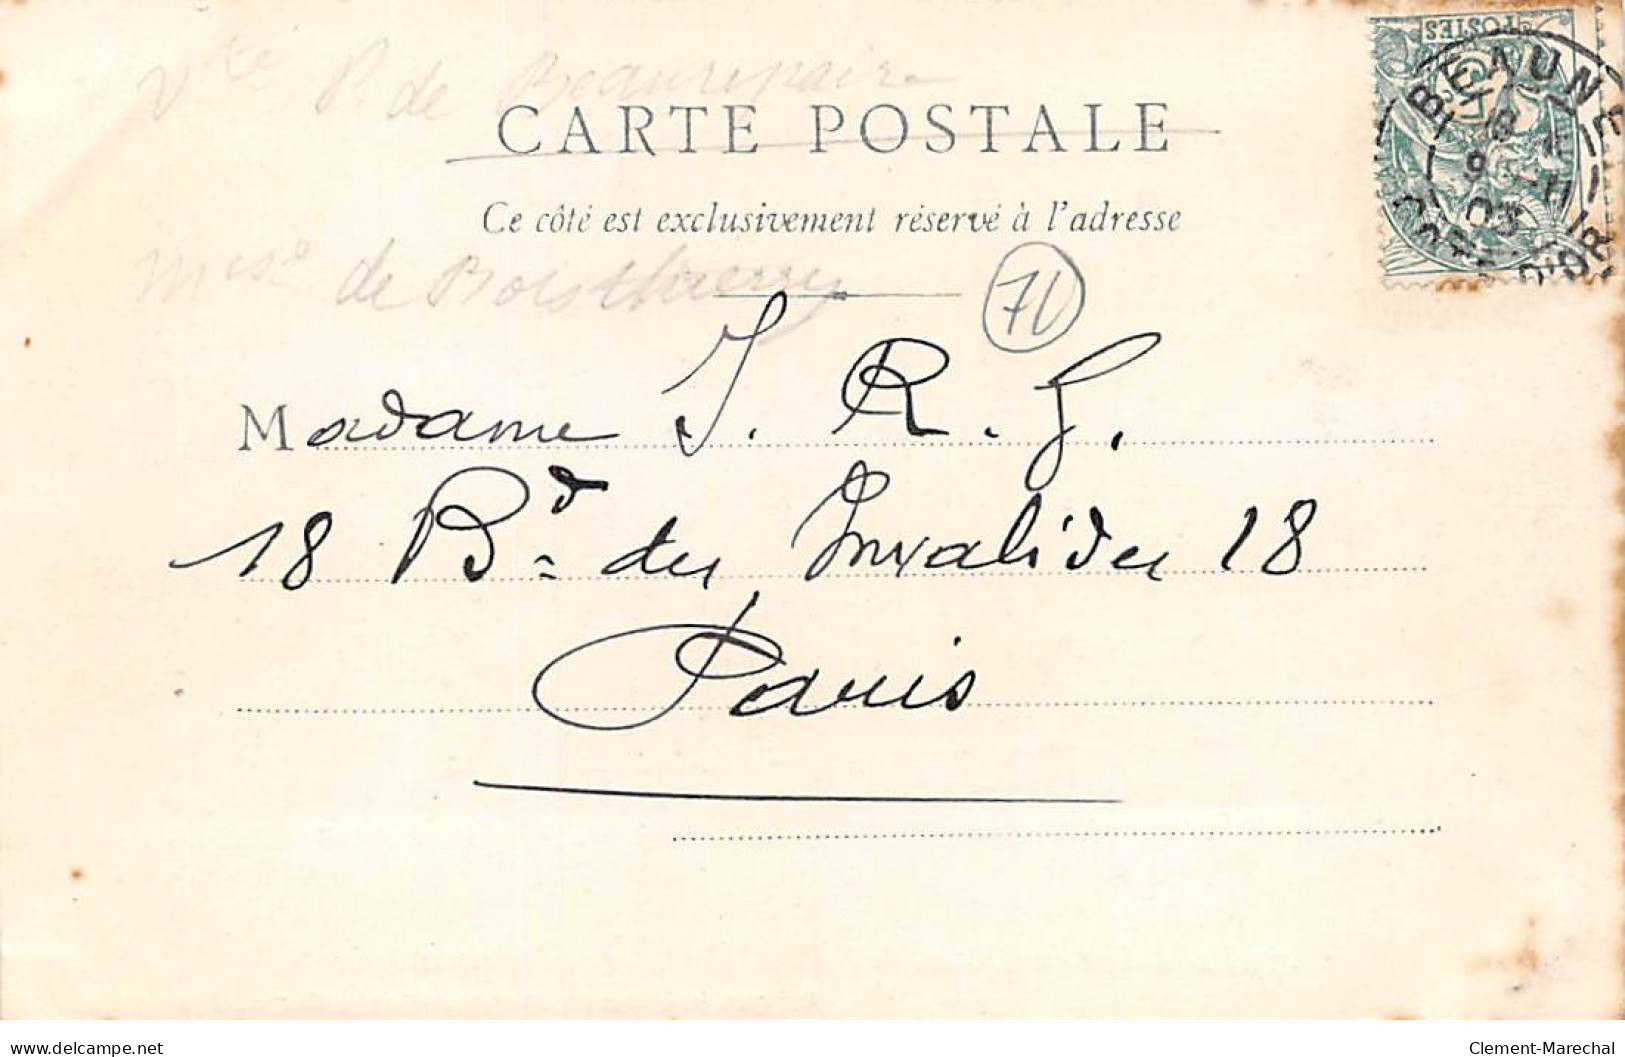 Vte P. de Beaurepaire
CARTE POSTALE
Ce côté est exclusivement réservé à l'adresse
Mise de Boisthierry
71
POSTES
BEAUNE
03
CÔTE D'OR
Madame J. R. G.
18 Bd des Invalides 18
Paris
www.delcampe.net
Clement-Marechal